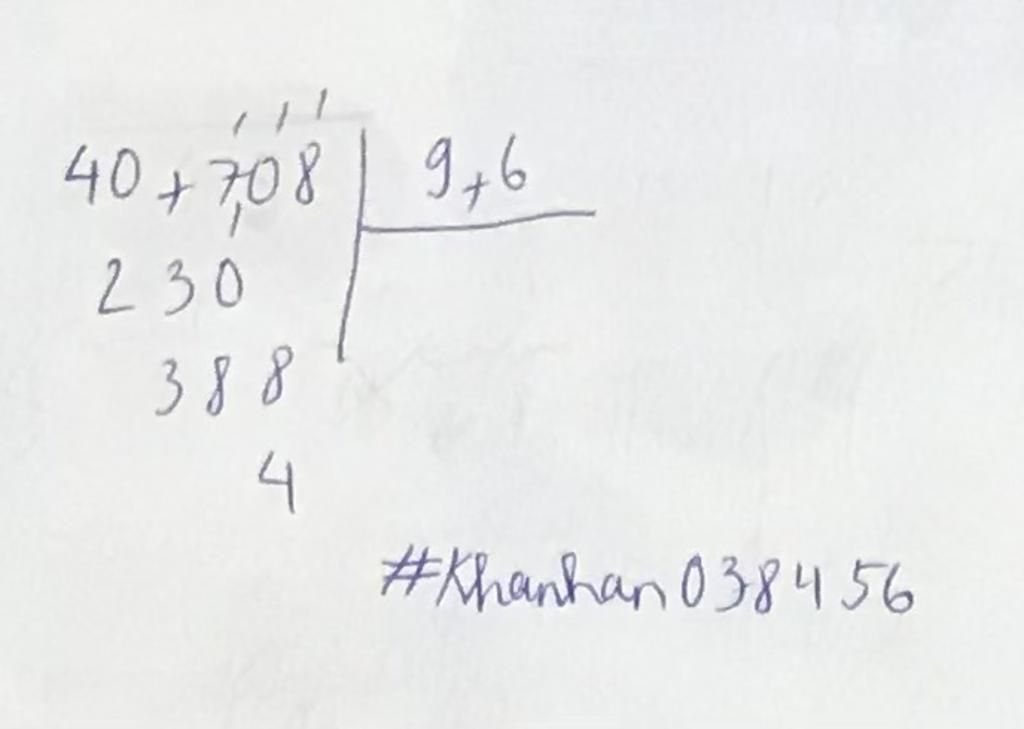 40,708 9,6
230
388
4
#Khanhan038456